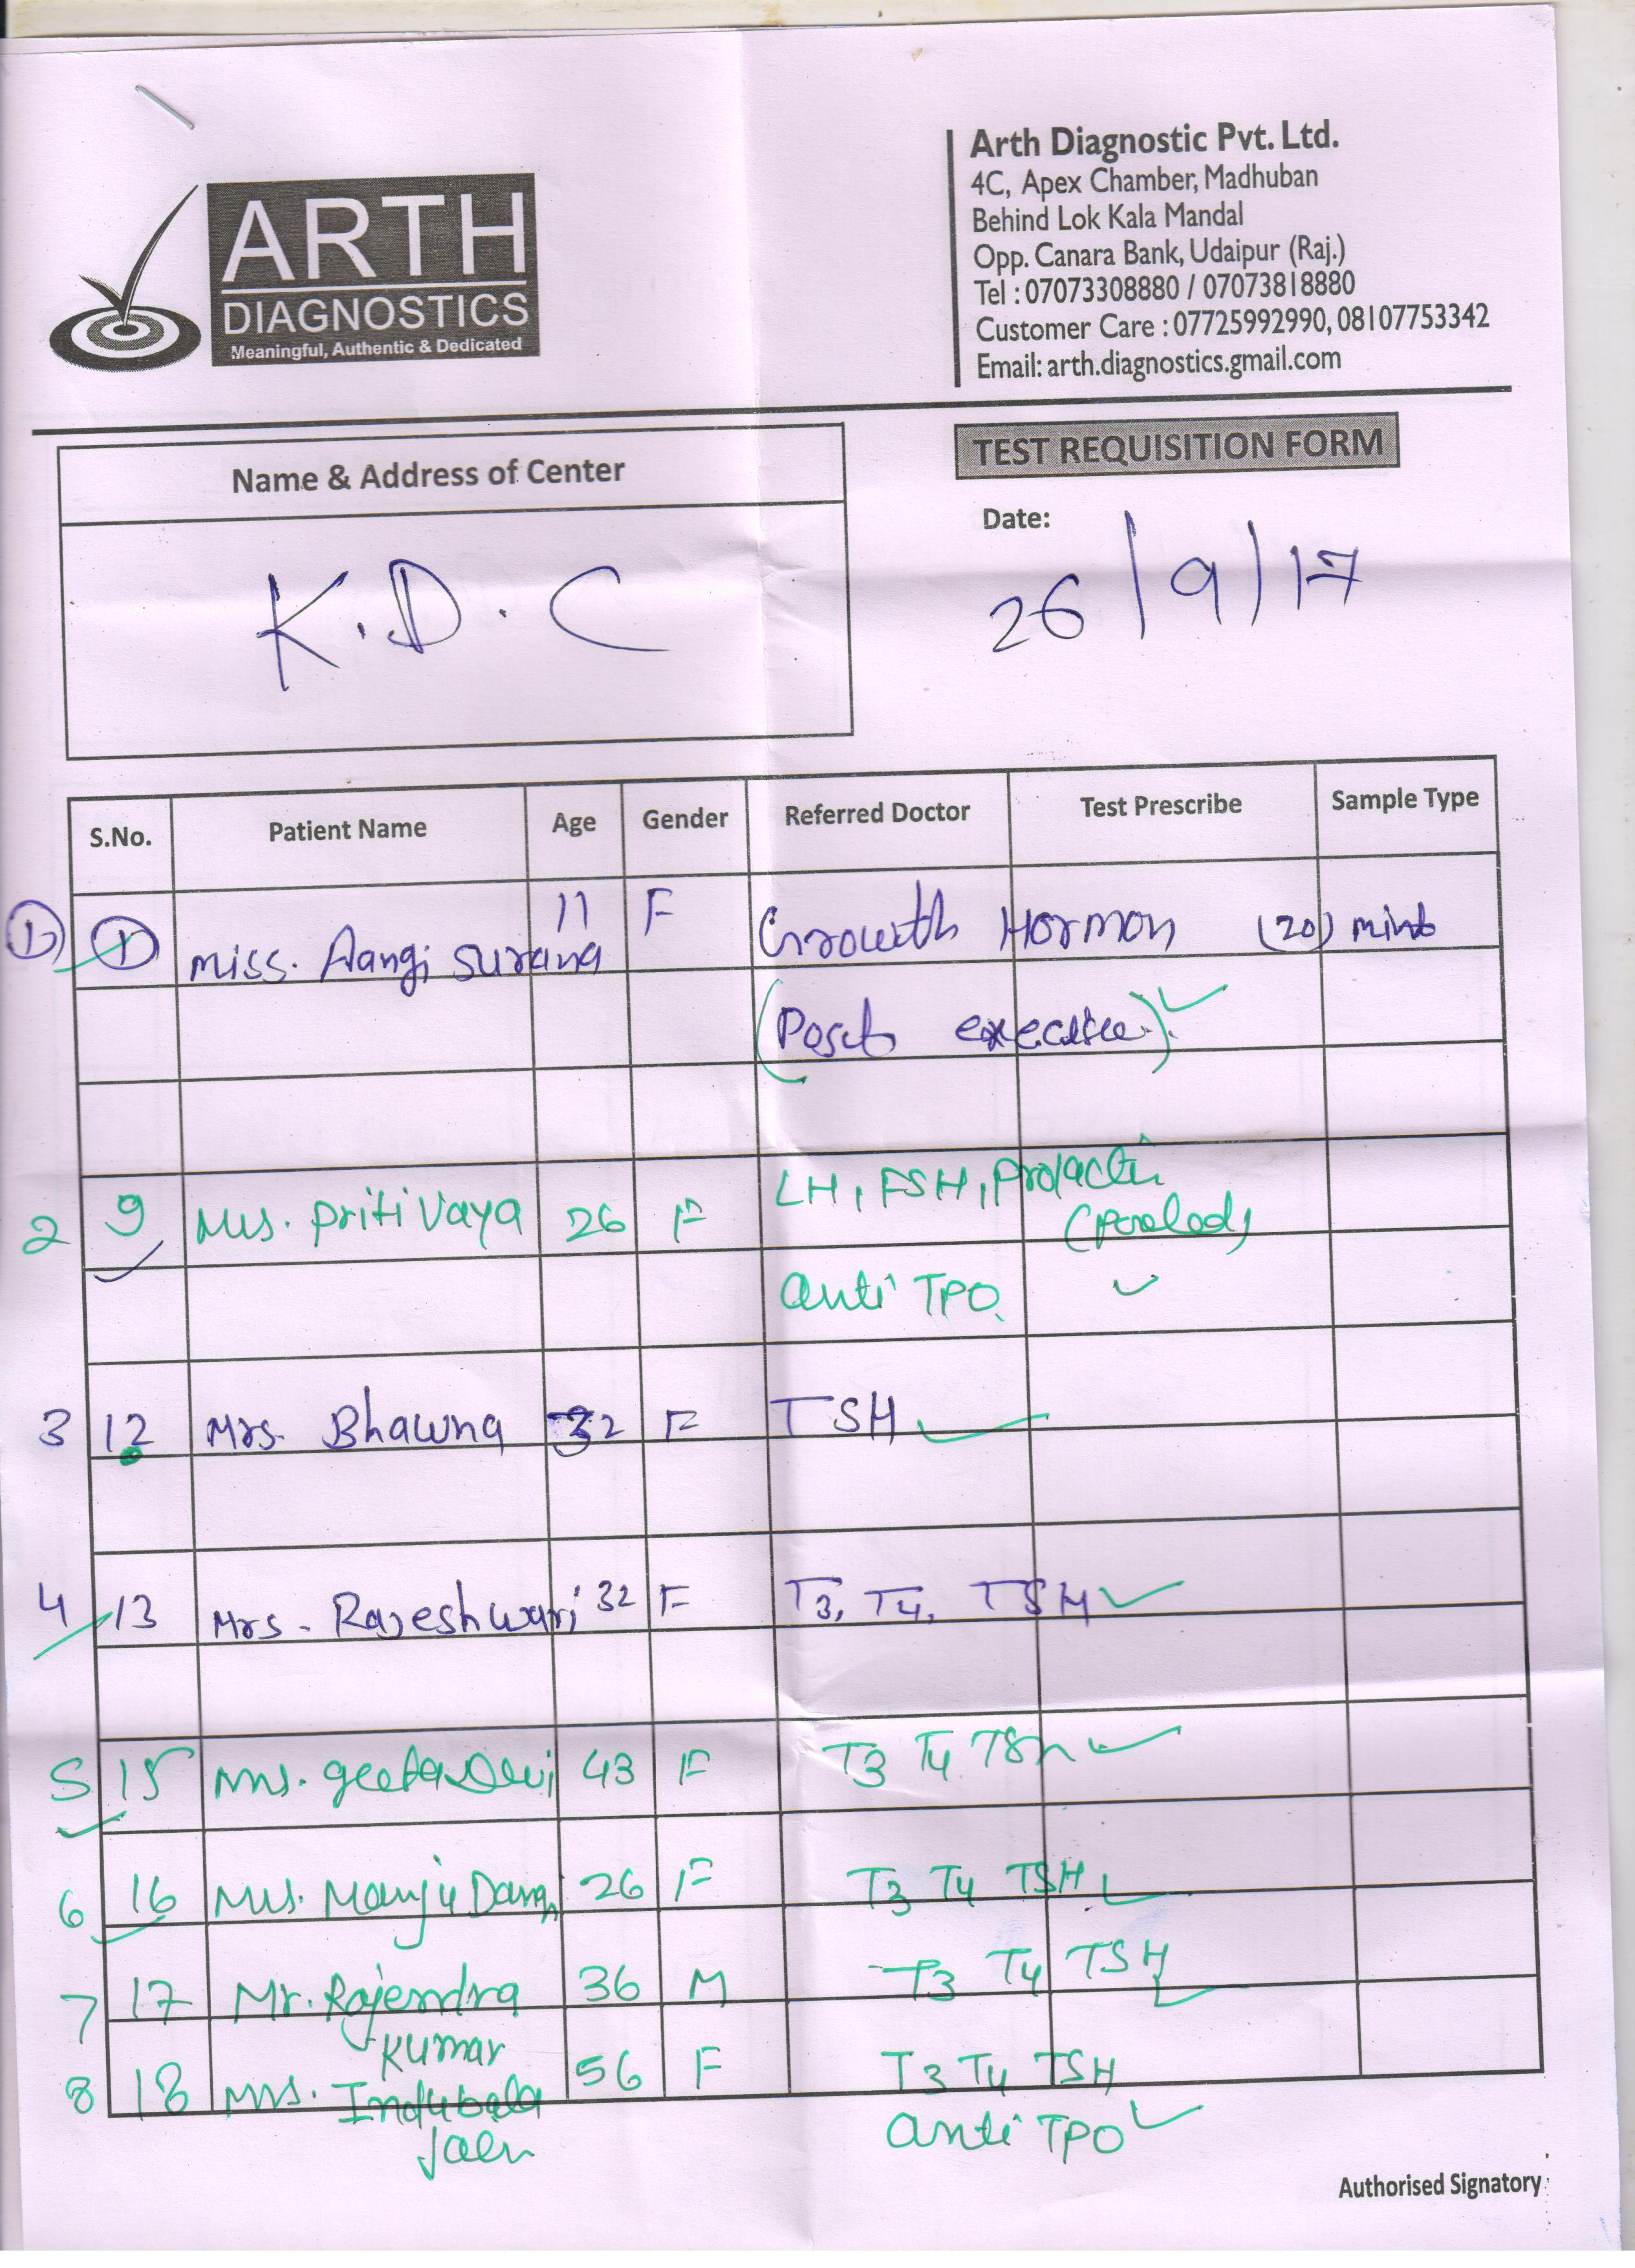 ARTH
DIAGNOSTICS
Meaningful, Authentic & Dedicated
Arth Diagnostic Pvt. Ltd.
4C, Apex Chamber, Madhuban
Behind Lok Kala Mandal
Opp. Canara Bank, Udaipur (Raj.)
Tel : 07073308880 / 07073818880
Customer Care : 07725992990, 08107753342
Email: arth.diagnostics.gmail.com
Name & Address of Center
K.D.C
TEST REQUISITION FORM
Date:
26/9/17
S.No. Patient Name Age Gender Referred Doctor Test Prescribe Sample Type
1 1 Miss. Aangi Surana 11 F Growth Hormon (20) mint
(Post )
2 9 Mrs. Priti Vaya 26 F LH, FSH, Prolactin
(Pooled)
anti TPO
3 12 Mrs. Bhawna 32 F TSH
4 13 Mrs. Rajeshwari 32 F T3, T4, TSH
5 15 Mrs. geeta Devi 43 F T3 T4 TSH
6 16 Mrs. Manju Dangi 26 F T3 T4 TSH
7 17 Mr. Rajendra 36 M T3 T4 TSH
Kumar
8 18 Mrs. Indubala 56 F T3 T4 TSH
Jain anti TPO
Authorised Signatory